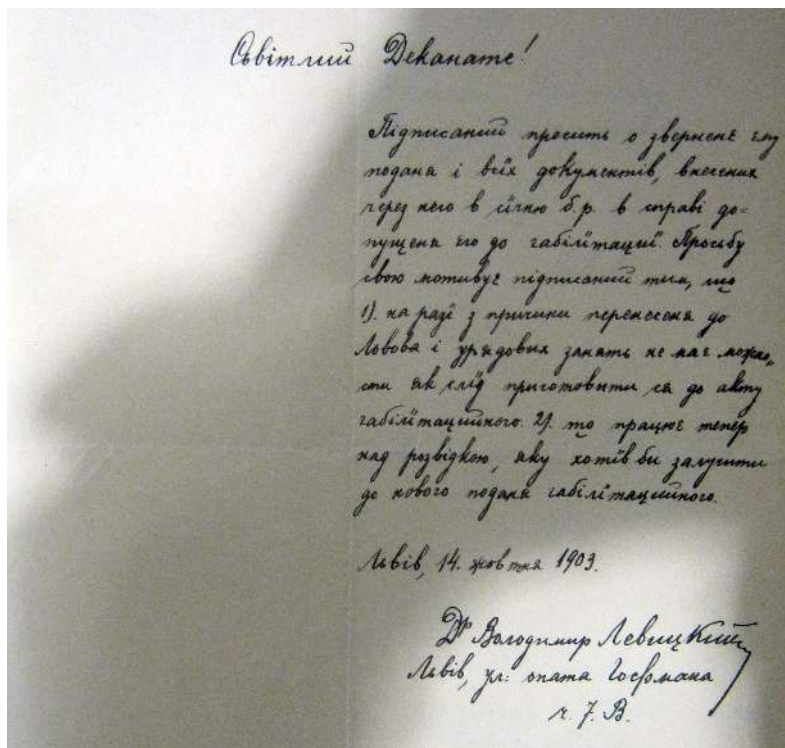 Сьвітлий Деканате!
Підписаний просить о зверненє єму
поданя і всїх документів, внесених
через него в сїчню б.р. в справі до=
пущеня его до габілїтациї. Просьбу
свою мотивує підписаний тим, що
1). на разї з причини перенесеня до
Львова і урядових занять не має можно„
сти як слїд приготовити ся до акту
габілїтацийного. 2). що працює тепер
над розвідкою, яку хотїв би залучити
до нового поданя габілїтацийного.
Львів, 14. жовтня 1903.
Др Володимир Левицкий
Львів, ул: опата Гофмана
ч. 7. В.